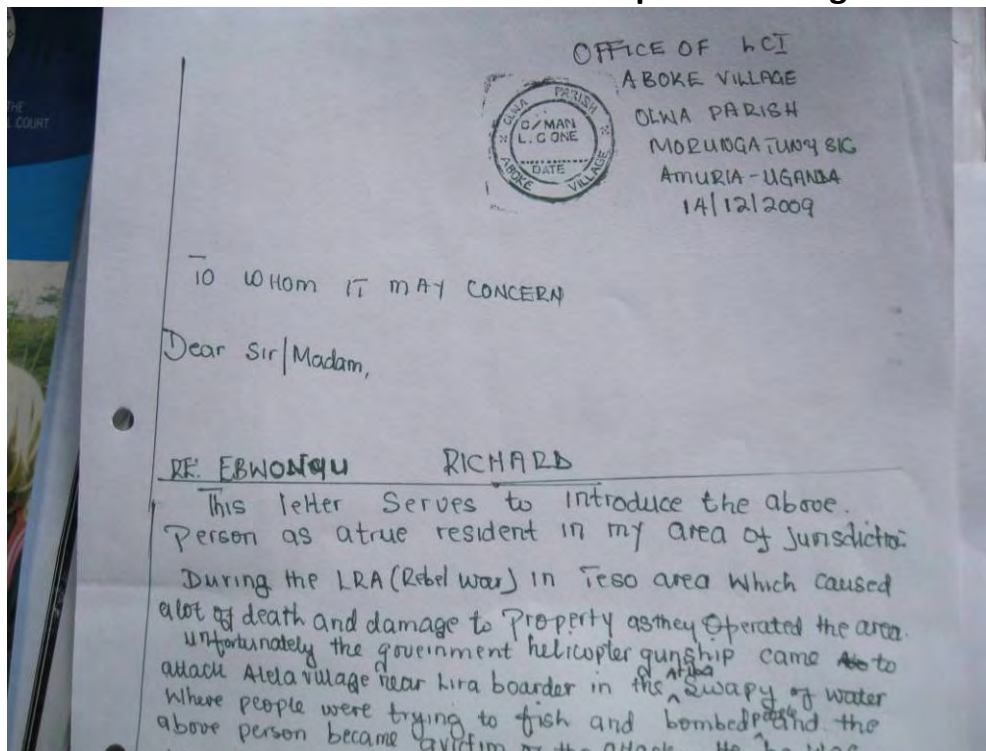 THE
L COURT
OFFICE OF LCI
ABOKE VILLAGE
OLWA PARISH
MORUNGATUNY S/C
AMURIA - UGANDA
14/12/2009
OLWA PARISH
C/MAN
L.C ONE
DATE
ABOKE VILLAGE
TO WHOM IT MAY CONCERN
Dear Sir/Madam,
RE: EBWONGU RICHARD
This letter Serves to introduce the above.
Person as atrue resident in my area of
During the LRA (Rebel war) in Teso area Which caused
alot of death and damage to Property asthey Operated the area.
unfortunately the government helicopter gunship came to
attack Alela village near Lira boarder in the swapy of water
Where people were trying to fish and bombed and the
above person became avictim the attack. He